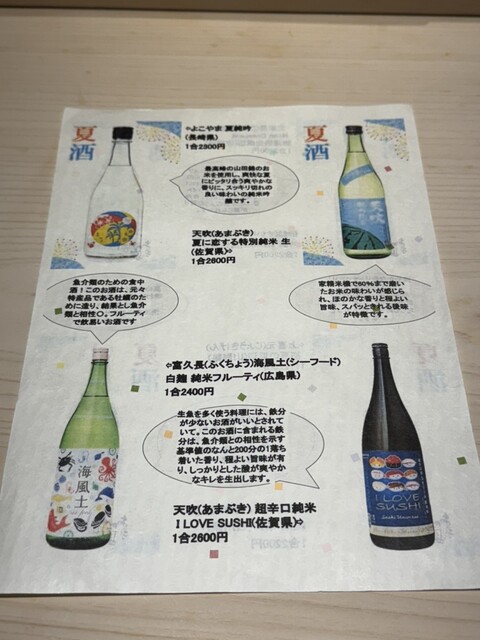 夏酒
⇦よこやま 夏純吟
(長崎県)
1合2300円
夏酒
最高峰の山田錦のお
米を使用し、爽快な夏
にピッタリ合う爽やかな
香りに、スッキリ切れの
良い味わいの純米吟
醸です。
天吹(あまぶき)
夏に恋する特別純米 生
(佐賀県)⇨
1合2600円
魚介類のための食中
酒!このお酒は、元々
特産品である牡蠣のた
めに造り、結果とし魚介
類と相性〇。フルーティ
で飲易いお酒です
家精米機で60%まで磨い
たお米の味わいが感じら
れ、ほのかな香りと程よい
旨味、スパッとされる後味
が特徴です。
⇦富久長(ふくちょう)海風土(シーフード)
白麹 純米フルーティ(広島県)
1合2400円
生魚を多く使う料理には、鉄分
が少ないお酒がいいとされて
いて。このお酒に含まれる鉄
分は、魚介類との相性を示す
基準値のなんと200分の1落ち
着いた香り、程よい旨味が有
り、しっかりとした酸が爽やか
なキレを生出します。
海風土
I LOVE
SUSHI
天吹(あまぶき) 超辛口純米
I LOVE SUSHI(佐賀県)⇨
1合2600円